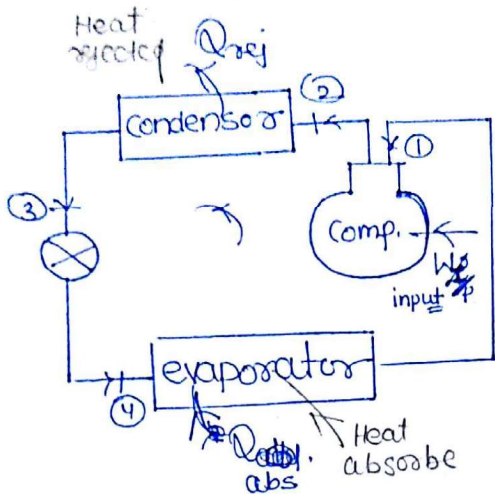 Heat
rejected
Qrej
condensor
②
①
③
comp.
input
evaporator
④
Heat
absorbe
abs